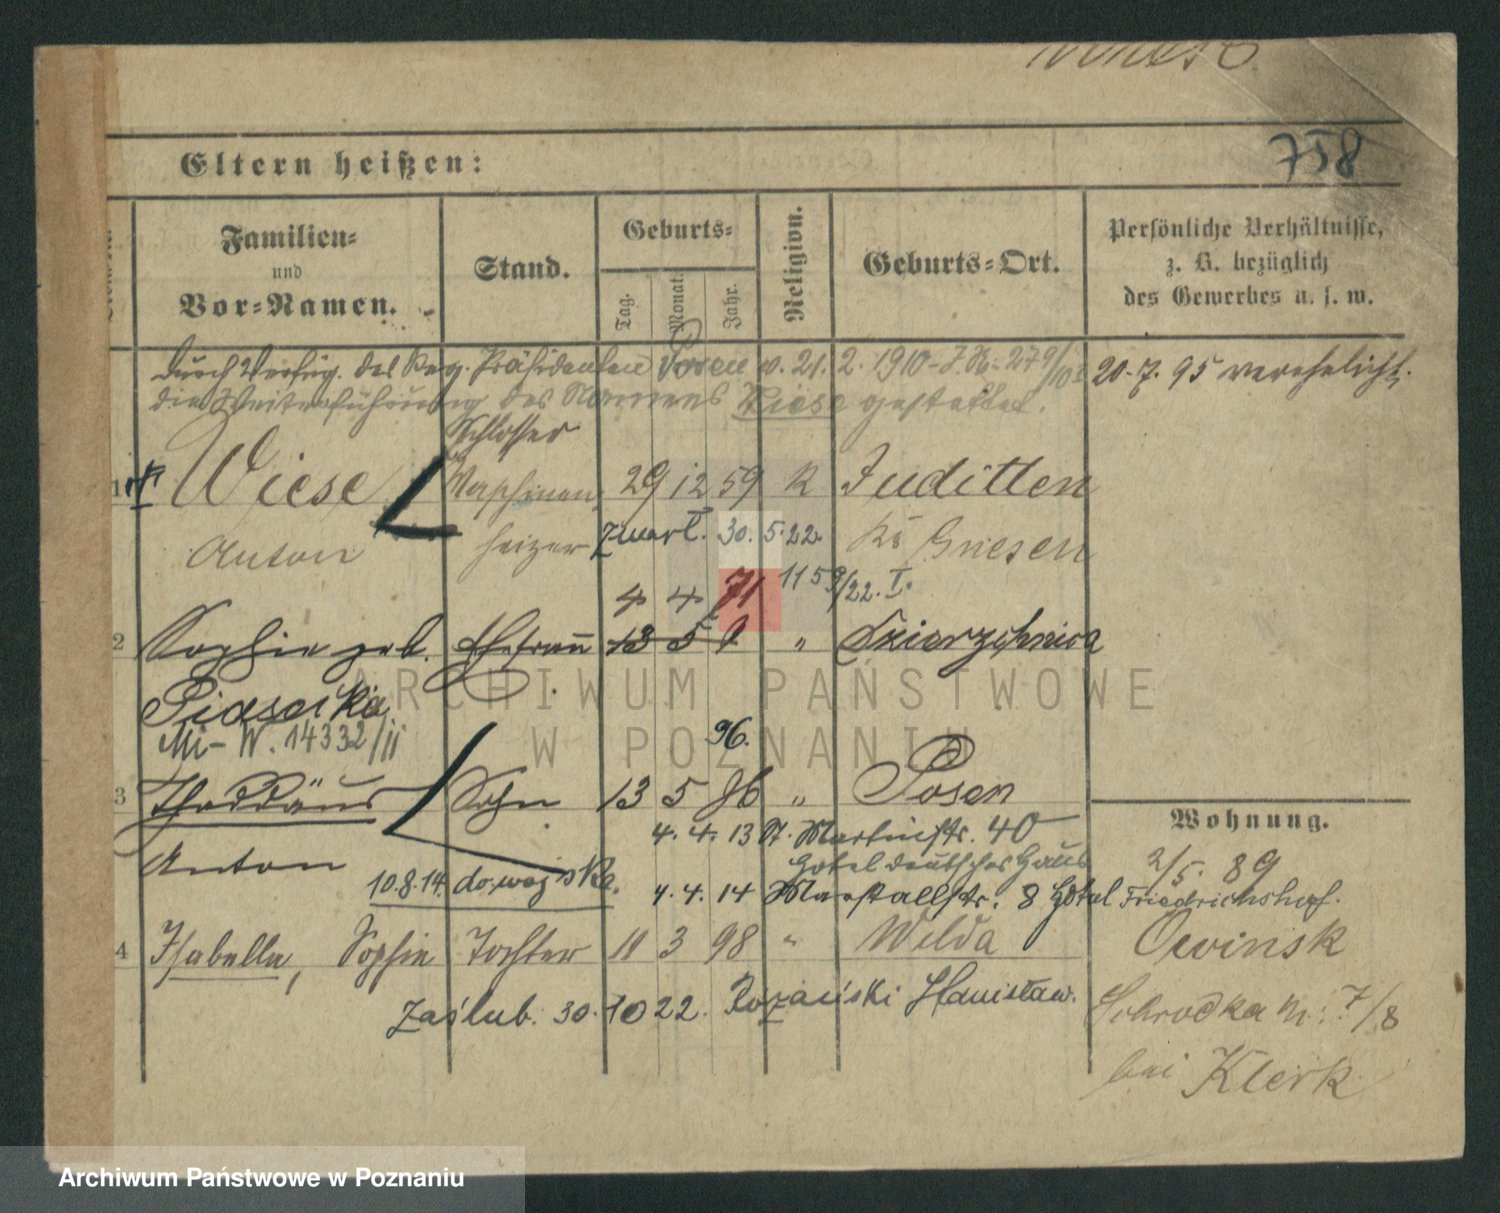 758
Eltern heißen:
Familien=
und
Vor=Namen.
Stand.
Geburts=
Tag.
Monat.
Jahr.
Religion.
Geburts=Ort.
Persönliche Verhältnisse,
z. B. bezüglich
des Gewerbes u. s. w.
Durch Verfüg. des Reg. Präsidenten Posen v. 21. 2. 1910
20. 7. 95 verehelicht.
die Weiterführung des Namens Wiese gestattet.
Schlosser
1 Wiese Maschinen= 29 12 59 K Juditten
Anton heizer zmarł. 30. 5. 22. Kr Gnesen
1159/22. I.
4 4 71
2 Sophie geb. Ehefrau 13 5 " Dzierzchnica
Piasecka
M-W. 14332/II
96.
3 Thaddäus Sohn 13 5 96 " Posen
Wohnung.
4. 4. 13 St. Martinstr. 40
Anton Hotel deutsches Haus 2/5. 89
10.8.14. do wojska. 4. 4. 14 Marstallstr. 8 Hotel Friedrichshof.
4 Isabella, Sophie Tochter 11 3 98 " Wilda Owinsk
Zaślub. 30. 10 22. Stanisław. Schrodka Nr. 7/8
bei Klerk
ARCHIWUM PAŃSTWOWE
W POZNANIU
Archiwum Państwowe w Poznaniu